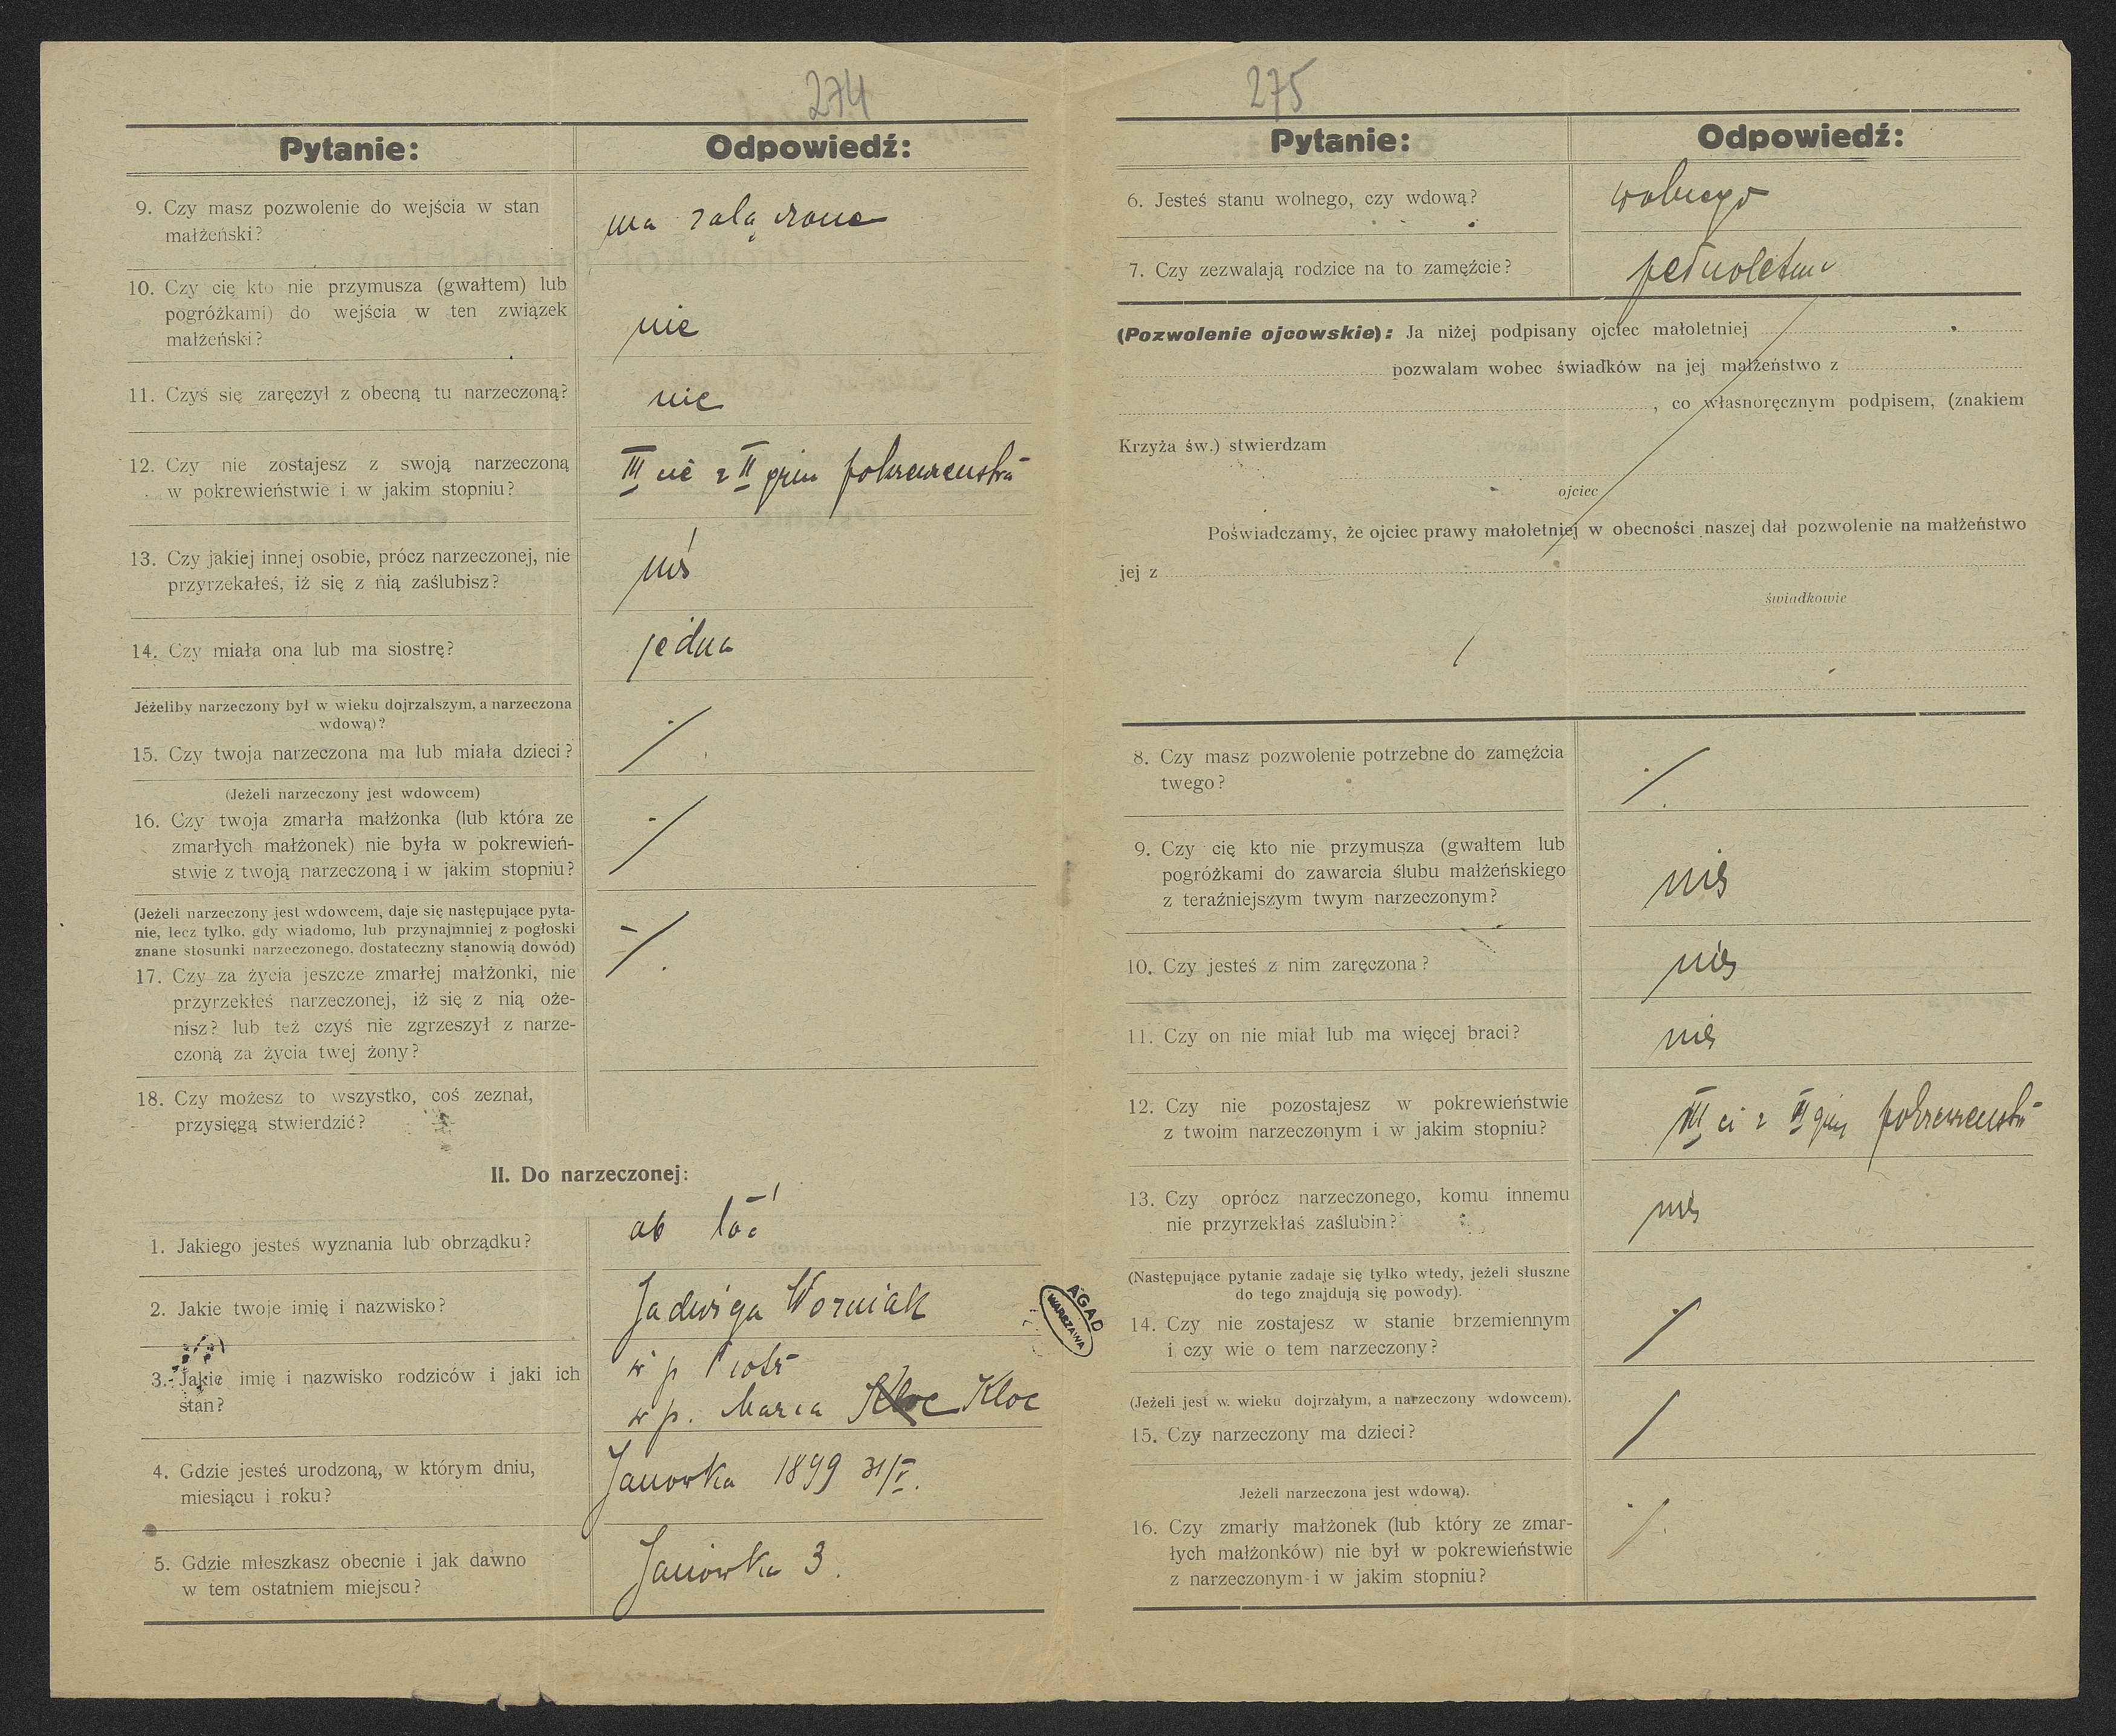 274
Pytanie:
Odpowiedź:
9. Czy masz pozwolenie do wejścia w stan
małżeński?
ma załączone
10. Czy cię kto nie przymusza (gwałtem) lub
pogróżkami) do wejścia w ten związek
małżeński?
nie
11. Czyś się zaręczył z obecną tu narzeczoną?
nie
12. Czy nie zostajesz z swoją narzeczoną
w pokrewieństwie i w jakim stopniu?
III z II pokrewieństwa
13. Czy jakiej innej osobie, prócz narzeczonej, nie
przyrzekałeś, iż się z nią zaślubisz?
nie
14. Czy miała ona lub ma siostrę?
jedna
Jeżeliby narzeczony był w wieku dojrzalszym, a narzeczona
wdową)?
15. Czy twoja narzeczona ma lub miała dzieci?
(Jeżeli narzeczony jest wdowcem)
16. Czy twoja zmarła małżonka (lub która ze
zmarłych małżonek) nie była w pokrewień-
stwie z twoją narzeczoną i w jakim stopniu?
(Jeżeli narzeczony jest wdowcem, daje się następujące pyta-
nie, lecz tylko, gdy wiadomo, lub przynajmniej z pogłoski
znane stosunki narzeczonego, dostateczny stanowią dowód)
17. Czy za życia jeszcze zmarłej małżonki, nie
przyrzekłeś narzeczonej, iż się z nią oże-
nisz? lub też czyś nie zgrzeszył z narze-
czoną za życia twej żony?
18. Czy możesz to wszystko, coś zeznał,
przysięgą stwierdzić?
II. Do narzeczonej:
1. Jakiego jesteś wyznania lub obrządku?
ob łać
2. Jakie twoje imię i nazwisko?
Jadwiga Worniak
3. Jakie imię i nazwisko rodziców i jaki ich
stan?
w p Piotr
w p. Maria Kloc Kloc
4. Gdzie jesteś urodzoną, w którym dniu,
miesiącu i roku?
Janowka 1899 31/V.
5. Gdzie mieszkasz obecnie i jak dawno
w tem ostatniem miejscu?
Janówka 3.
AGAD
WARSZAWA
275
Pytanie:
Odpowiedź:
6. Jesteś stanu wolnego, czy wdową?
wolnego
7. Czy zezwalają rodzice na to zamęźcie?
pełnoletnia
(Pozwolenie ojcowskie): Ja niżej podpisany ojciec małoletniej
pozwalam wobec świadków na jej małżeństwo z
, co własnoręcznym podpisem, (znakiem
Krzyża św.) stwierdzam
ojciec
Poświadczamy, że ojciec prawy małoletniej w obecności naszej dał pozwolenie na małżeństwo
jej z
świadkowie
8. Czy masz pozwolenie potrzebne do zamęźcia
twego?
9. Czy cię kto nie przymusza (gwałtem lub
pogróżkami do zawarcia ślubu małżeńskiego
z teraźniejszym twym narzeczonym?
nie
10. Czy jesteś z nim zaręczona?
nie
11. Czy on nie miał lub ma więcej braci?
nie
12. Czy nie pozostajesz w pokrewieństwie
z twoim narzeczonym i w jakim stopniu?
III ci z II pokrewieństwa
13. Czy oprócz narzeczonego, komu innemu
nie przyrzekłaś zaślubin?
nie
(Następujące pytanie zadaje się tylko wtedy, jeżeli słuszne
do tego znajdują się powody).
14. Czy nie zostajesz w stanie brzemiennym
i czy wie o tem narzeczony?
(Jeżeli jest w. wieku dojrzałym, a narzeczony wdowcem).
15. Czy narzeczony ma dzieci?
Jeżeli narzeczona jest wdową).
16. Czy zmarły małżonek (lub który ze zmar-
łych małżonków) nie był w pokrewieństwie
z narzeczonym i w jakim stopniu?